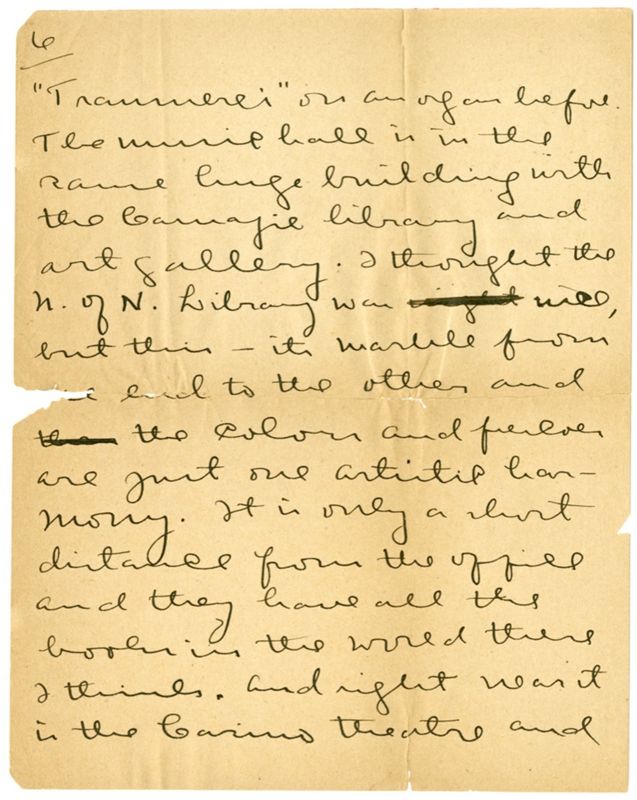 6
"Traumerei" on an organ before.
The music hall is in the
same huge building with
the Carnagie library and
art gallery. I thought the
N. of N. Library was nice,
but this – its marble from
end to the other and
the colors and
are just one artistic har-
mony. It is only a short
distance from the office
and they have all the
books in the world there
I think. And right near it
is the Casino theatre and